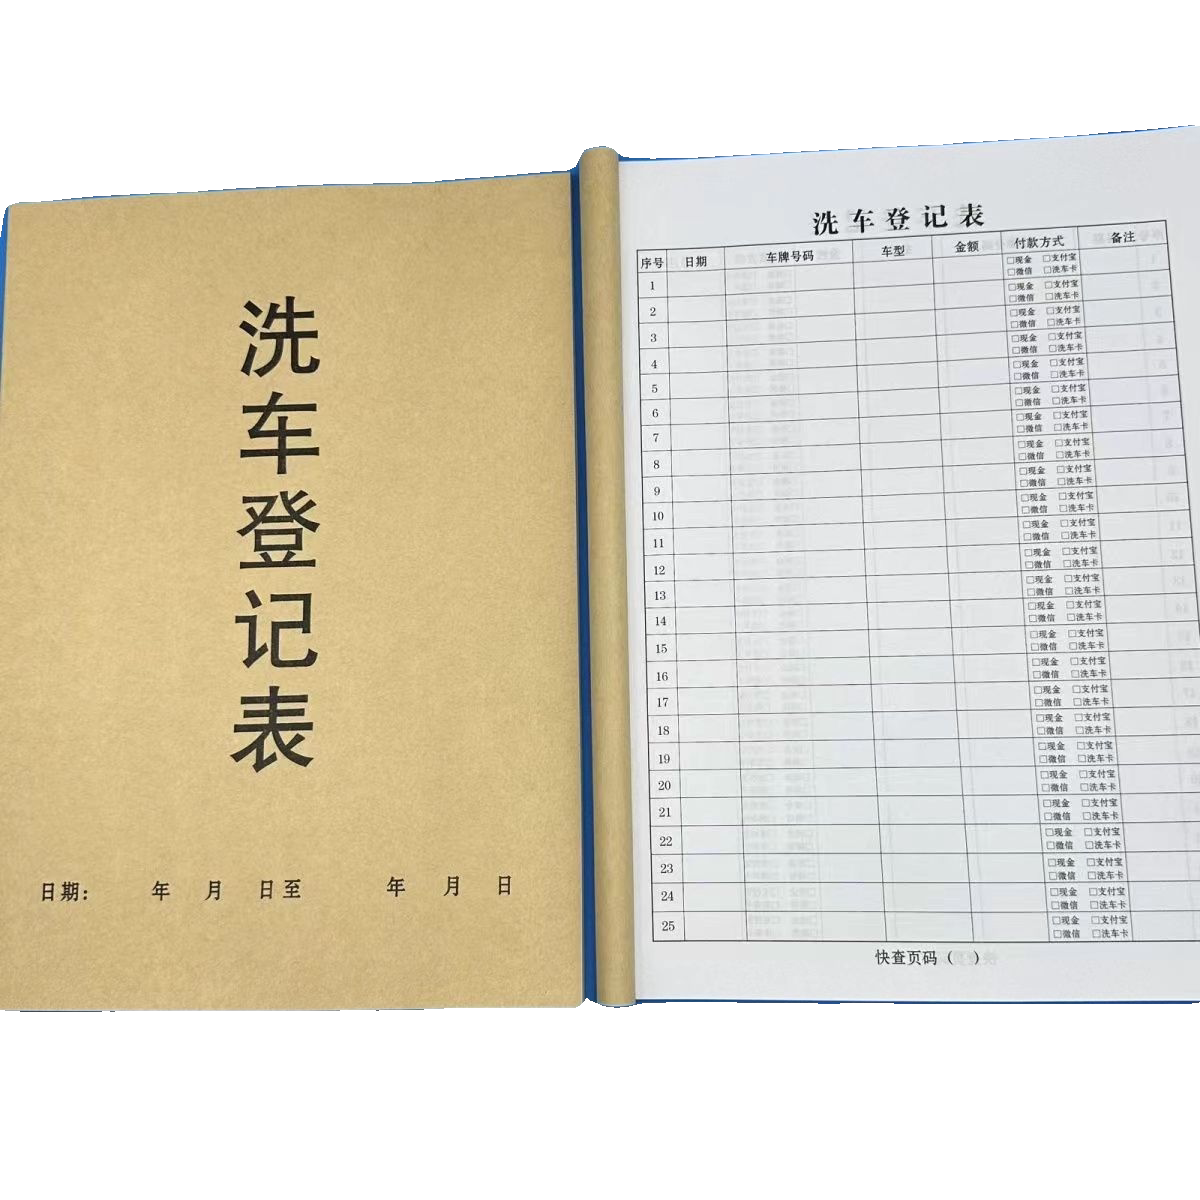 洗车登记表
日期： 年 月 日至 年 月 日
洗车登记表
序号 日期 车牌号码 车型 金额 付款方式 备注
1 □现金 □支付宝
□微信 □洗车卡
2 □现金 □支付宝
□微信 □洗车卡
3 □现金 □支付宝
□微信 □洗车卡
4 □现金 □支付宝
□微信 □洗车卡
5 □现金 □支付宝
□微信 □洗车卡
6 □现金 □支付宝
□微信 □洗车卡
7 □现金 □支付宝
□微信 □洗车卡
8 □现金 □支付宝
□微信 □洗车卡
9 □现金 □支付宝
□微信 □洗车卡
10 □现金 □支付宝
□微信 □洗车卡
11 □现金 □支付宝
□微信 □洗车卡
12 □现金 □支付宝
□微信 □洗车卡
13 □现金 □支付宝
□微信 □洗车卡
14 □现金 □支付宝
□微信 □洗车卡
15 □现金 □支付宝
□微信 □洗车卡
16 □现金 □支付宝
□微信 □洗车卡
17 □现金 □支付宝
□微信 □洗车卡
18 □现金 □支付宝
□微信 □洗车卡
19 □现金 □支付宝
□微信 □洗车卡
20 □现金 □支付宝
□微信 □洗车卡
21 □现金 □支付宝
□微信 □洗车卡
22 □现金 □支付宝
□微信 □洗车卡
23 □现金 □支付宝
□微信 □洗车卡
24 □现金 □支付宝
□微信 □洗车卡
25 □现金 □支付宝
□微信 □洗车卡
快查页码（ ）